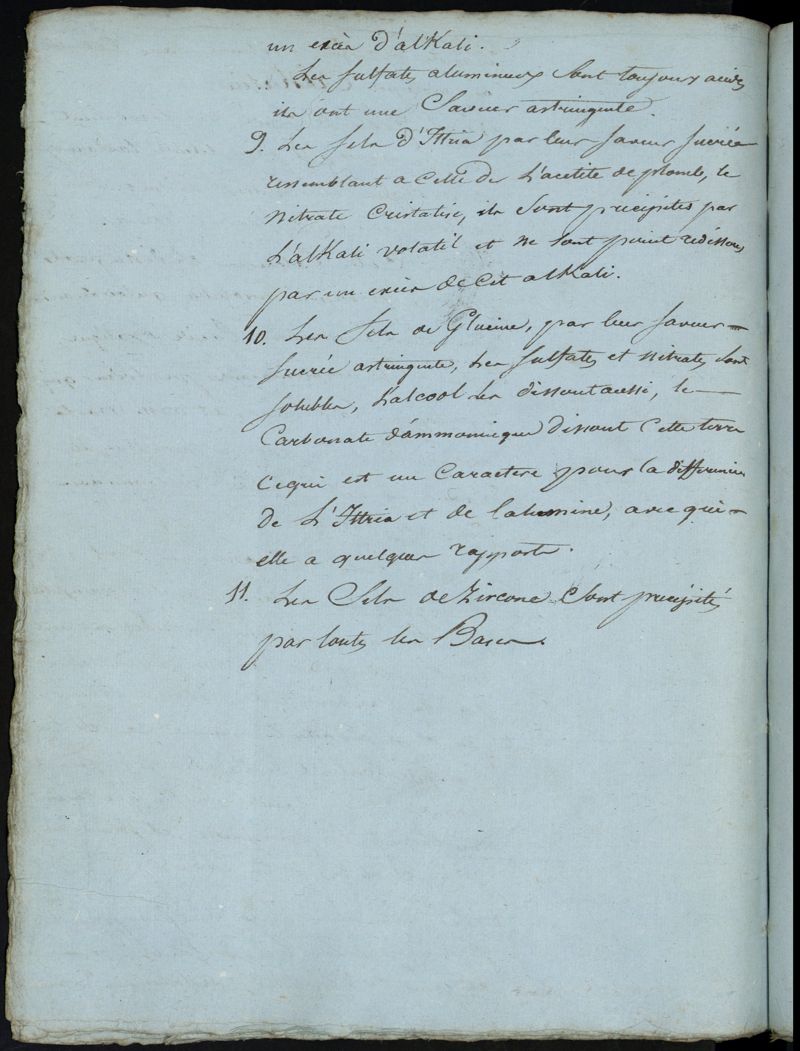 un excès d'alKali.
Les sulfates alumineux sont toujours acides
ils ont une Saveur astringente.
9. Les Sels d'Ittria par leur saveur sucrée
ressemblant a celle de L'acetite de plomb, le
Nitrate Cristalise, ils sont precipités par
L'alKali volatil et ne sont point redissous
par un excès de Cet alKali.
10. Les Sels de Glucine, par leur saveur
sucrée astringente, Les sulfates et nitrates sont
solubles, L'alcool les dissout aussi, le
Carbonate d'ammoniaque dissout Cette terre
Cequi est un Caractere pour la differencier
de L'Ittria et de l'alumine, avec qui
elle a quelques rapports.
11. Les Sels de Zircone Sont precipités
par toutes les Bases.